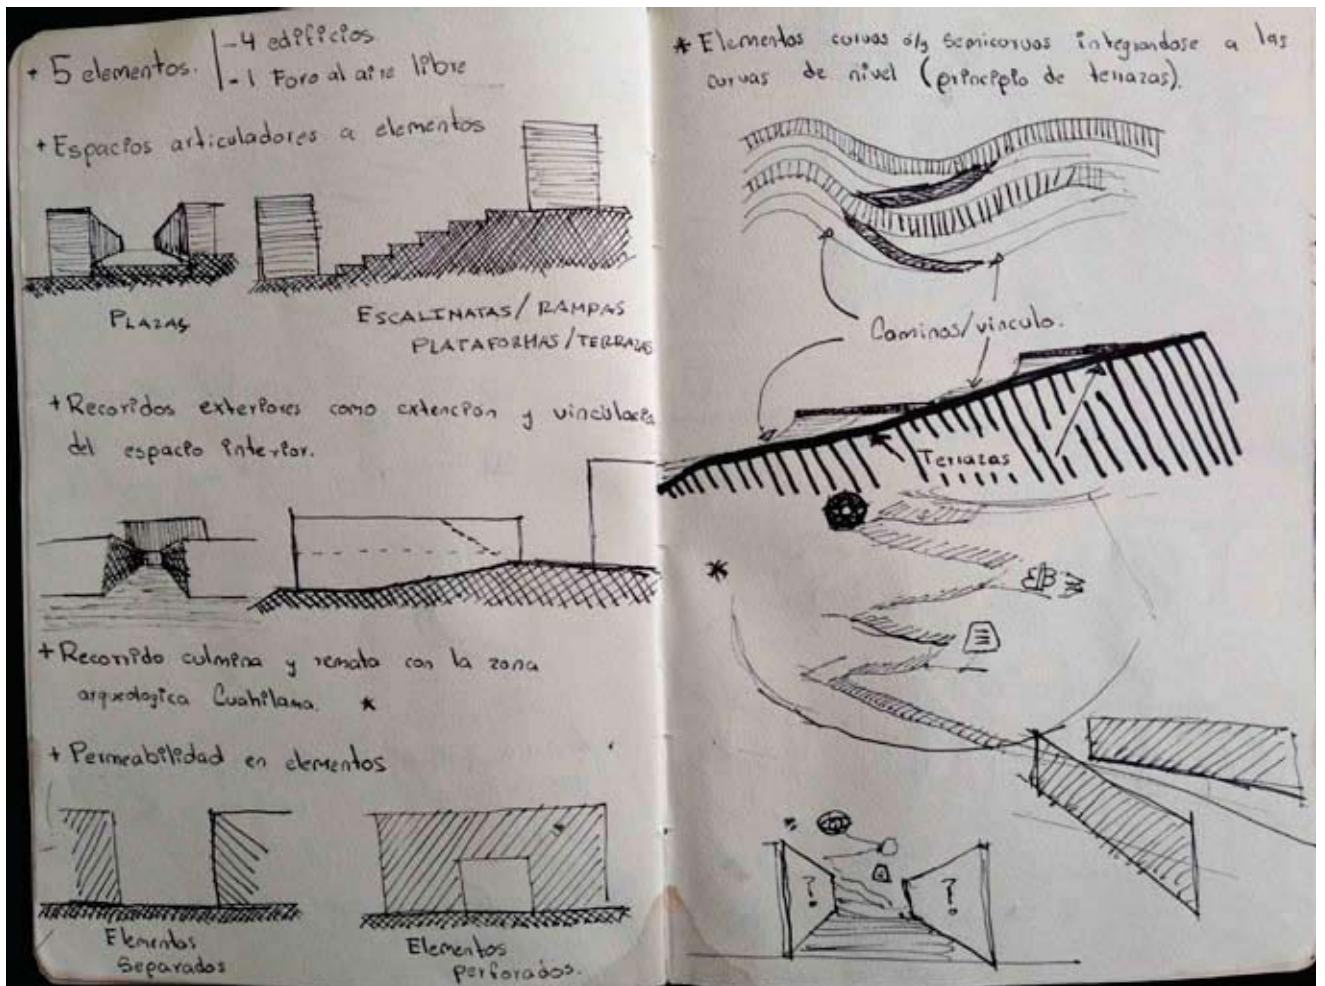 + 5 elementos.
- 4 edificios
- 1 Foro al aire libre
+ Espacios articuladores a elementos
PLAZAS
ESCALINATAS/RAMPAS
PLATAFORMAS/TERRAZAS
+ Recorridos exteriores como extención y
del espacio interior.
+ Recorrido culmina y remata con la zona
arqueologica Cuahilama. *
+ Permeabilidad en elementos
Elementos
Separados
Elementos
perforados.
* Elementos curvos ó/y semicurvos integrandose a las
curvas de nivel (principio de terrazas).
Caminos/vinculo.
Terrazas
*
?
?